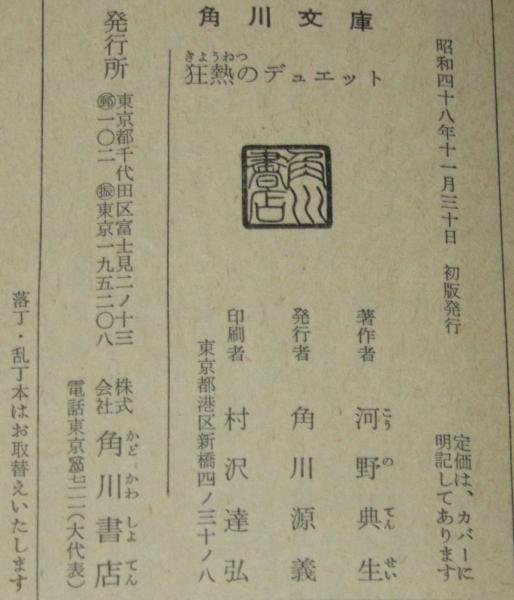 角川文庫
狂熱のデュエット
きょうねつ
昭和四十八年十一月三十日　初版発行
定価は、カバーに
明記してあります
著作者　河野典生
こうのてんせい
発行者　角川源義
印刷者　村沢達弘
東京都港区新橋四ノ三十ノ八
角川書店
発行所
東京都千代田区富士見二ノ十三
㊩一〇二　㊩東京一九五二〇八
株式
会社
角川書店
かどかわしょてん
電話東京 七一一(大代表)
落丁・乱丁本はお取替えいたします